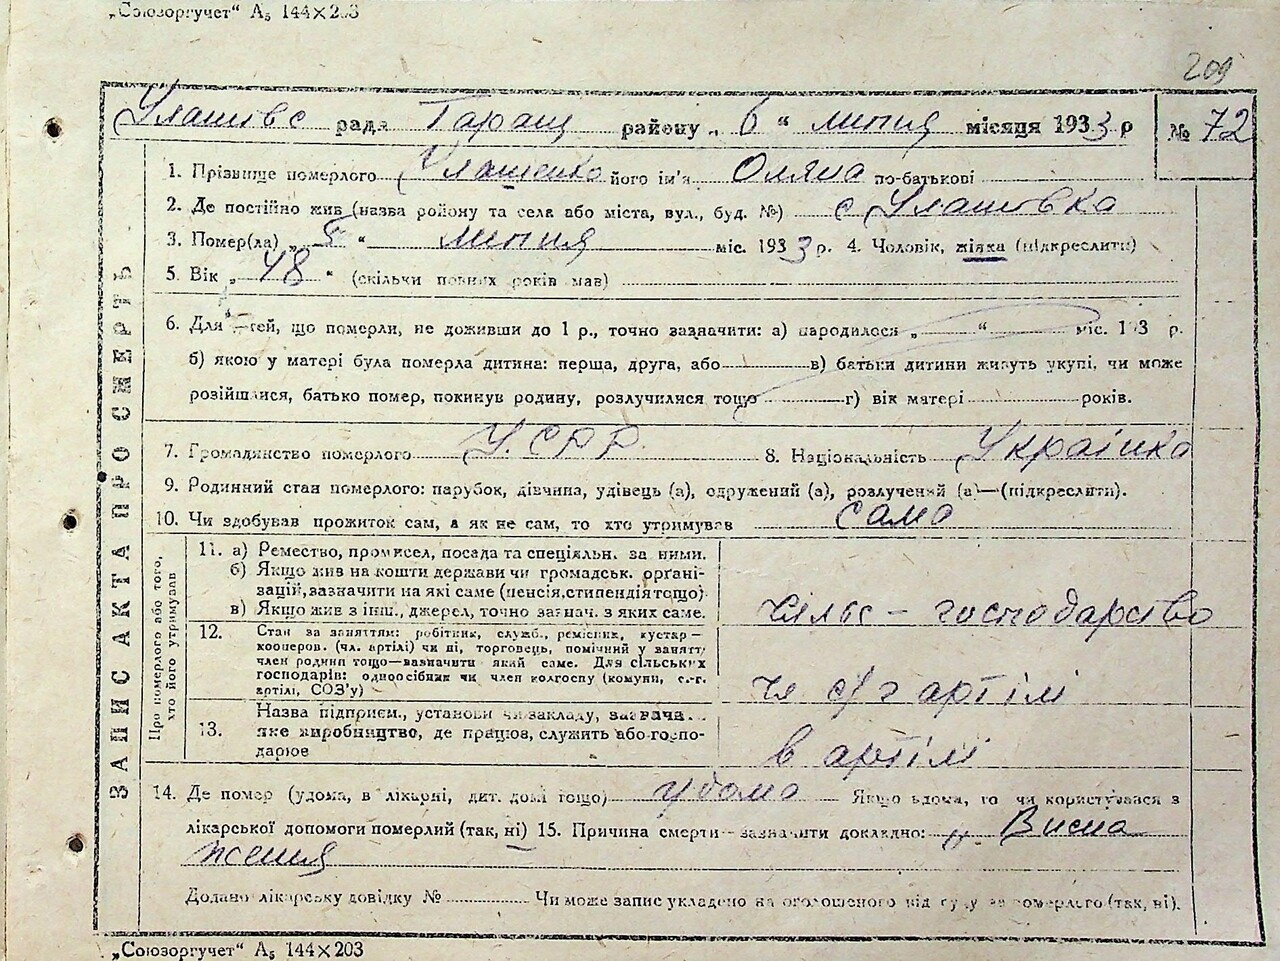 „Союзоргучет“ А₅ 144×203
209
Улашівс рада Таращ районну „ 6 “ липня місяця 1933 р № 72
ЗАПИС АКТА ПРО СМЕРТЬ
1. Прізвище померлого Улашенко його ім'я Оляна по-батькові
2. Де постійно жив (назва району та села або міста, вул., буд. №) с Улашовка
3. Помер(ла) „ 5 “ липня міс. 1933 р. 4. Чоловік, жінка (підкреслити)
5. Вік „ 48 “ (скільки повних років мав)
6. Для тей, що померли, не доживши до 1 р., точно зазначити: а) народилося „ “ міс. 193 р.
б) якою у матері була померла дитина: перша, друга, або в) батьки дитини живуть укупі, чи може
розійшлися, батько помер, покинув родину, розлучилися тощо г) вік матері років.
7. Громадянство померлого У.С.Р.Р. 8. Національність Українка
9. Родинний стан померлого: парубок, дівчина, удівець (а), одружений (а), розлучений (а)—(підкреслити).
10. Чи здобував прожиток сам, а як не сам, то хто утримував сама
Про померлого або того, хто його утримував
11. а) Ремество, промисел, посада та спеціяльн. за ними.
б) Якщо жив на кошти держави чи громадськ. орґані-
зацій, зазначити на які саме (пенсія, стипендія тощо)
в) Якщо жив з інш., джерел, точно зазнач. з яких саме.
сільс – господарство
12. Стан за заняттям: робітник, служб., ремісник, кустар—
кооперов. (чл. артілі) чи ні, торговець, помічний у занятті
член родини тощо—зазначити який саме. Для сільських
господарів: одноосібник чи член колгоспу (комуни, с.-г.
артілі, СОЗ'у)
чл с/г артілі
13. Назва підприєм., установи чи закладу, зазнача
яке виробництво, де працюв, служить або госпо-
дарює
в артілі
14. Де помер (удома, в лікарні, дит. домі тощо) удома Якщо вдома, то чи користувався з
лікарської допомоги померлий (так, ні) 15. Причина смерти – зазначити докладно: Висна
ження
Додано лікарську довідку № Чи може запис укладено на оголошеного від суду за померлого (так, ні).
„Союзоргучет“ А₅ 144×203